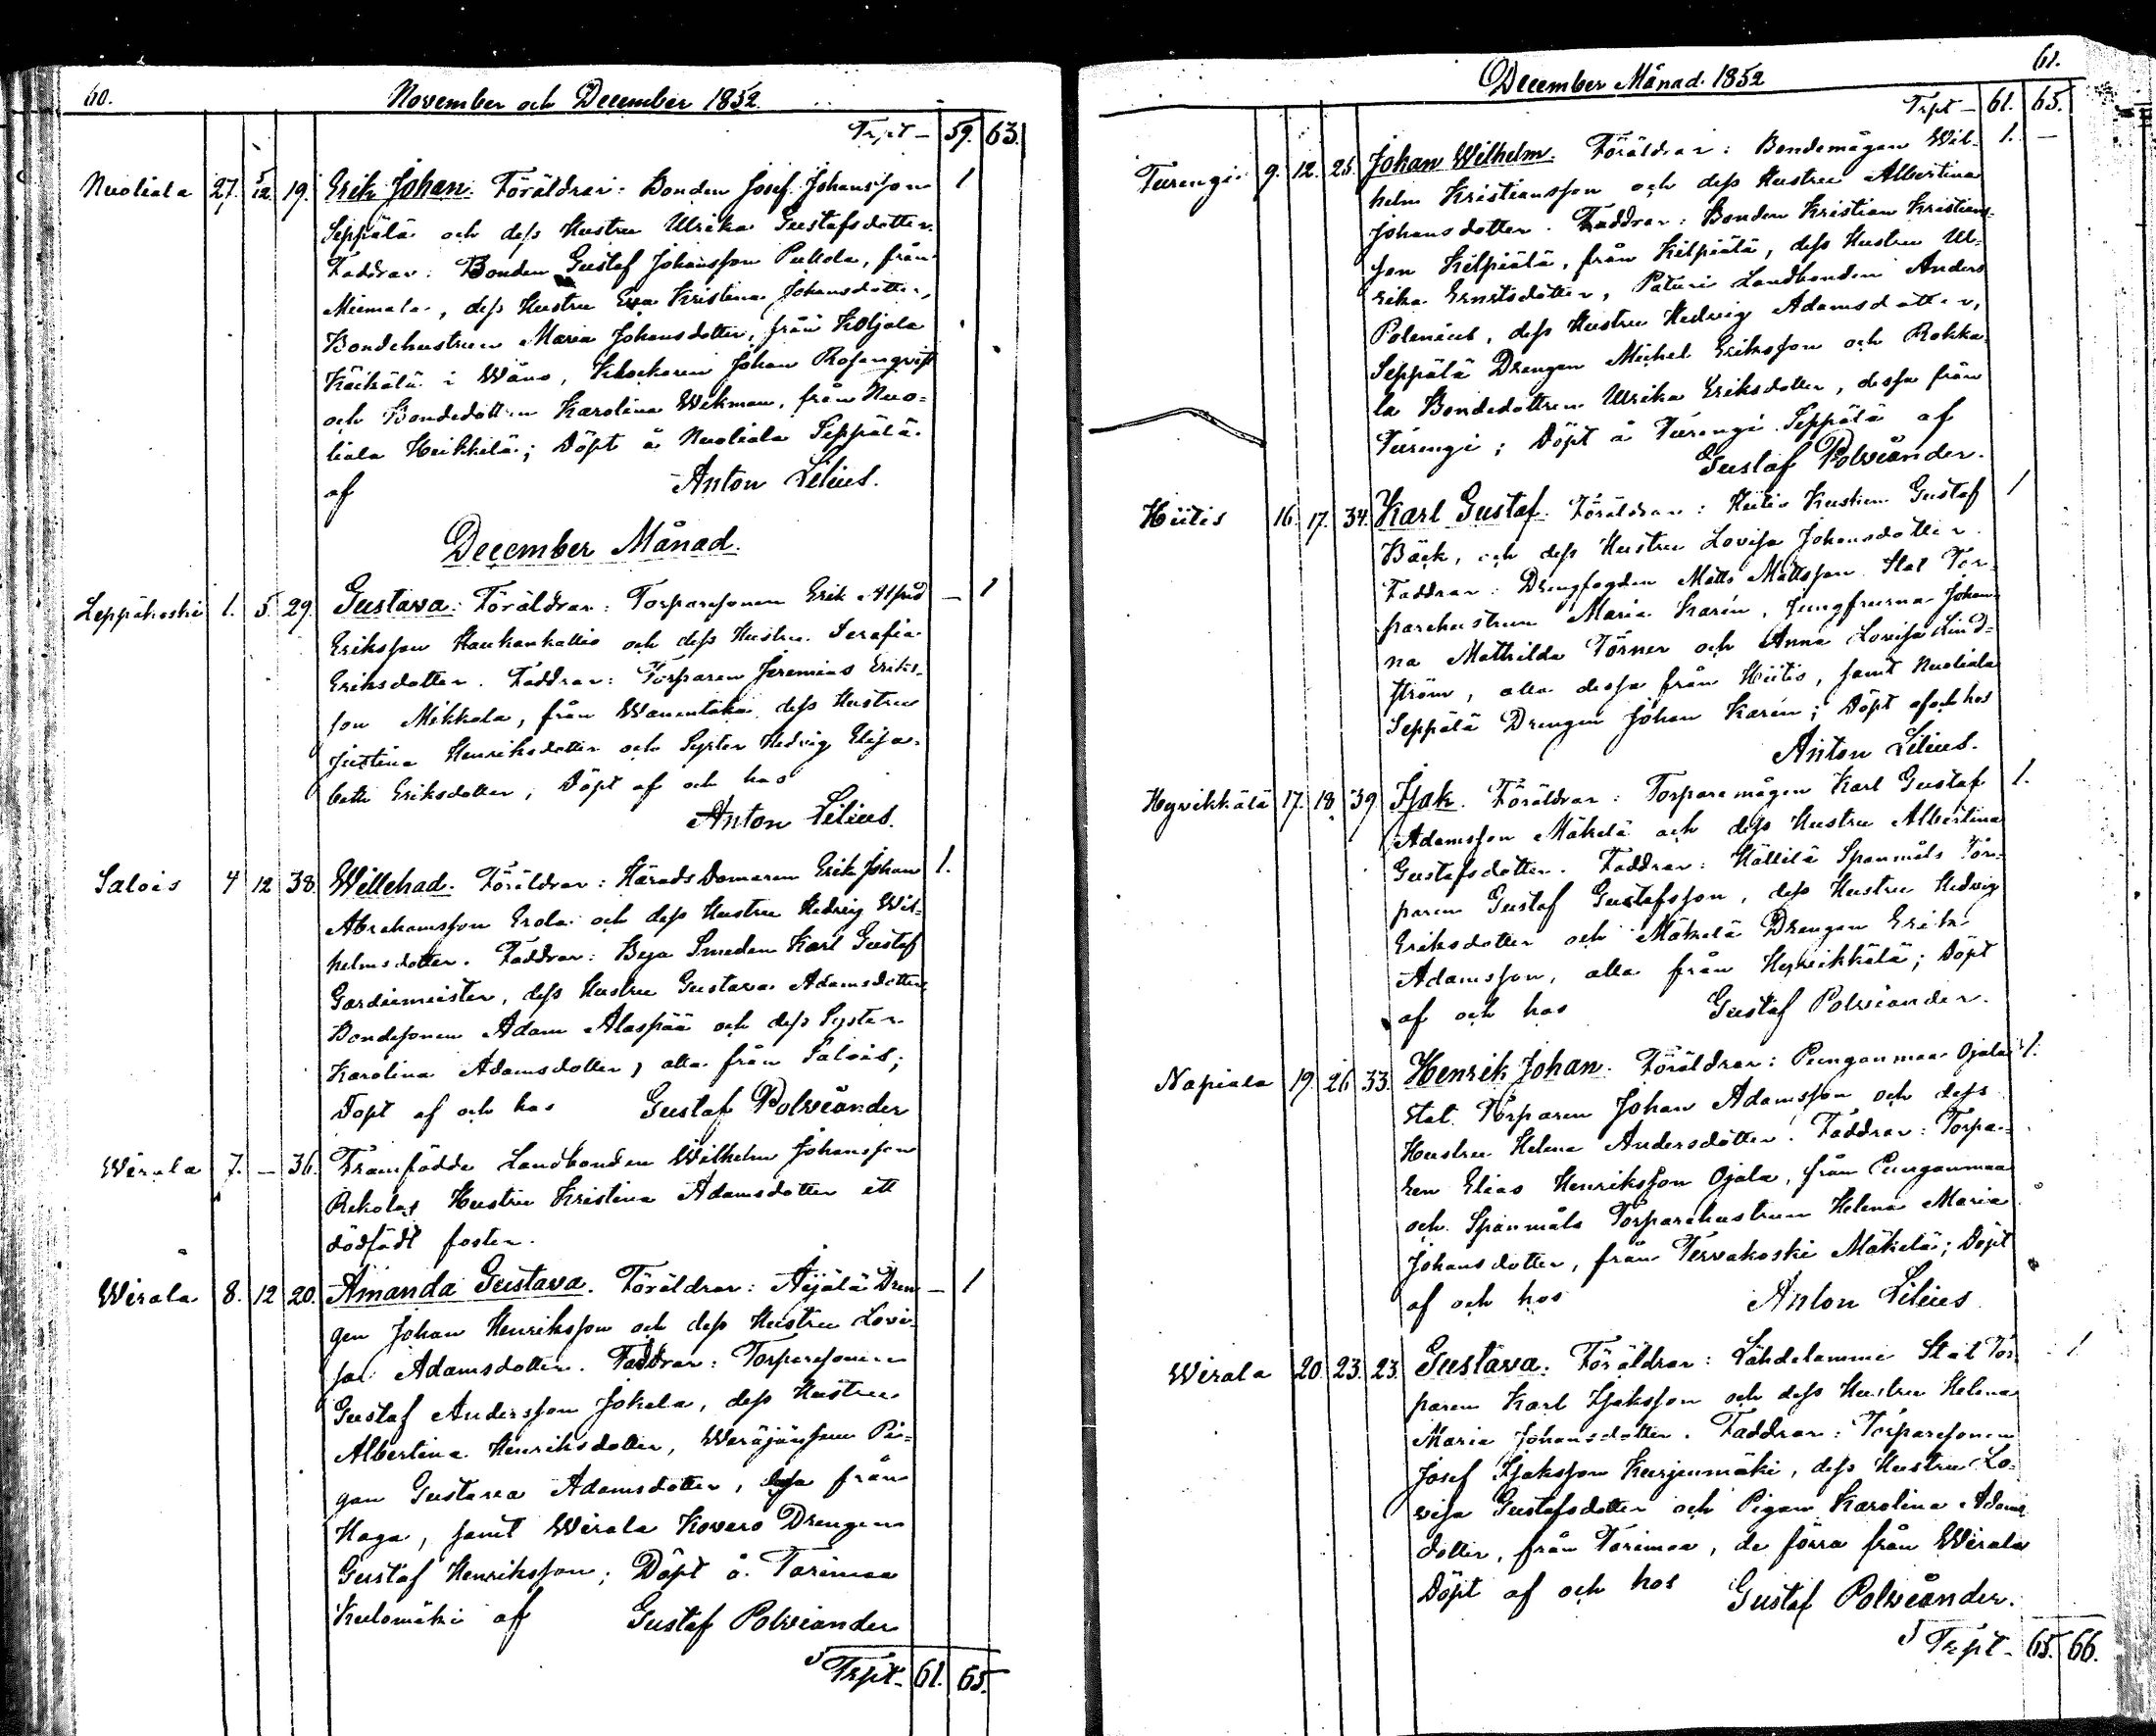 60.
November och December 1852.
Trpt — 59. 63.
Nuoliala 27. 5/12 19. Erik Johan. Föräldrar: Bonden Josef Johansson 1
Seppälä och dess Hustru Ulrika Gustafsdotter.
Faddrar: Bonden Gustaf Johansson Pukola, från
Miemala, dess Hustru Eva Kristina Johansdotter,
Bondehustrun Maria Johansdotter, från
i Wånå, Klockaren Johan Rosenqvist
och Bondedottren Karolina Wekman, från Nuo-
liala Heikkilä; Döpt å Nuoliala Seppälä
af Anton Lilius.
December Månad.
Leppäkoski 1. 5. 29. Gustava. Föräldrar: Torparesonen Erik Alfrid — 1
Eriksson Haukankallio och dess Hustru Serafia
Eriksdotter. Faddrar: Torparen Jeremias Eriks-
son Mikkola, från Wanantaka dess Hustru
Justina Henriksdotter och Syster Hedvig Elisa-
beth Eriksdotter; Döpt af och hos
Anton Lilius.
Salois 4 12 38. Willehad. Föräldrar: Härads Domaren Erik Johan 1.
Abrahamsson Erola och dess Hustru Hedvig Wil-
helmsdotter. Faddrar: Bya Smeden Karl Gustaf
Gardiemeister, dess Hustru Gustava Adamsdotter
Bondesonen Adam Alaspää och dess Syster
Karolina Adamsdotter, alla från Salois;
Döpt af och hos Gustaf Polviander
Wirala 7. — 36. Framfödde Landbonden Wilhelm Johansson
Rekolas Hustru Kristina Adamsdotter ett
dödfödt foster.
Wirala 8. 12 20. Amanda Gustava. Föräldrar: Äijälä Dren- — 1
gen Johan Henriksson och dess Hustru Lovi-
sa Adamsdotter. Faddrar: Torparesonen
Gustaf Andersson Jokela, dess Hustru
Albertina Henriksdotter, Pi-
gan Gustava Adamsdotter, dessa från
Haga, samt Wirala Kovero Drengen
Gustaf Henriksson; Döpt å Tarinmaa
Kulomäki af Gustaf Polviander
Trpt. 61. 65.
61.
December Månad 1852
Trpt — 61. 65.
Turengi 9. 12. 25. Johan Wilhelm. Föräldrar: Bondemågen Wil- 1. —
helm Kristiansson och dess Hustru Albertina
Johansdotter. Faddrar: Bonden Kristian Kristians-
son Kilpiälä, från Kilpiälä, dess Hustru Ul-
rika Ernstsdotter, Paturi Landbonden Anders
Polenius, dess Hustru Hedvig Adamsdotter,
Seppälä Drengen Michel Eriksson och Rokka-
la Bondedottren Ulrika Eriksdotter, dessa från
Turengi; Döpt å Turengi Seppälä af
Gustaf Polviander.
Hiitis 16. 17. 34. Karl Gustaf. Föräldrar: Hiitis Gustaf 1
Bäck, och dess Hustru Lovisa Johansdotter.
Faddrar: Drengfogden Matts Mattsson. Stat Tor-
parehustrun Maria Karén, Jungfrurna Johan-
na Mathilda Törner och Anna Lovisa Lind-
ström, alla dessa från Hiitis, samt Nuoliala
Seppälä Drengen Johan Karén; Döpt af och hos
Anton Lilius.
Hyvikkälä 17. 18. 39. Isak. Föräldrar: Torparemågen Karl Gustaf 1.
Adamsson Mäkelä och dess Hustru Albertina
Gustafsdotter. Faddrar: Källilä Spanmåls Tor-
paren Gustaf Gustafsson, dess Hustru Hedvig
Eriksdotter och Mäkelä Drengen Erik
Adamsson, alla från Hyvikkälä; Döpt
af och hos Gustaf Polviander.
Napiala 19. 26. 33. Henrik Johan. Föräldrar: Punganmaa Ojala 1.
Stat Torparen Johan Adamsson och dess
Hustru Helena Andersdotter. Faddrar: Torpa-
ren Elias Henriksson Ojala, från Punganmaa
och Spanmåls Torparehustrun Helena Maria
Johansdotter, från Tervakoski Mäkelä; Döpt
af och hos Anton Lilius
Wirala 20. 23. 23. Gustava. Föräldrar: Lähdelamme Stat Tor- 1
paren Karl Isaksson och dess Hustru Helena
Maria Johansdotter. Faddrar: Torparesonen
Josef Isaksson Kurjenmäki, dess Hustru Lo-
visa Gustafsdotter och Pigan Karolina Adams
dotter, från Tarinmaa, de förra från Wirala
Döpt af och hos Gustaf Polviander.
Trpt. 65. 66.